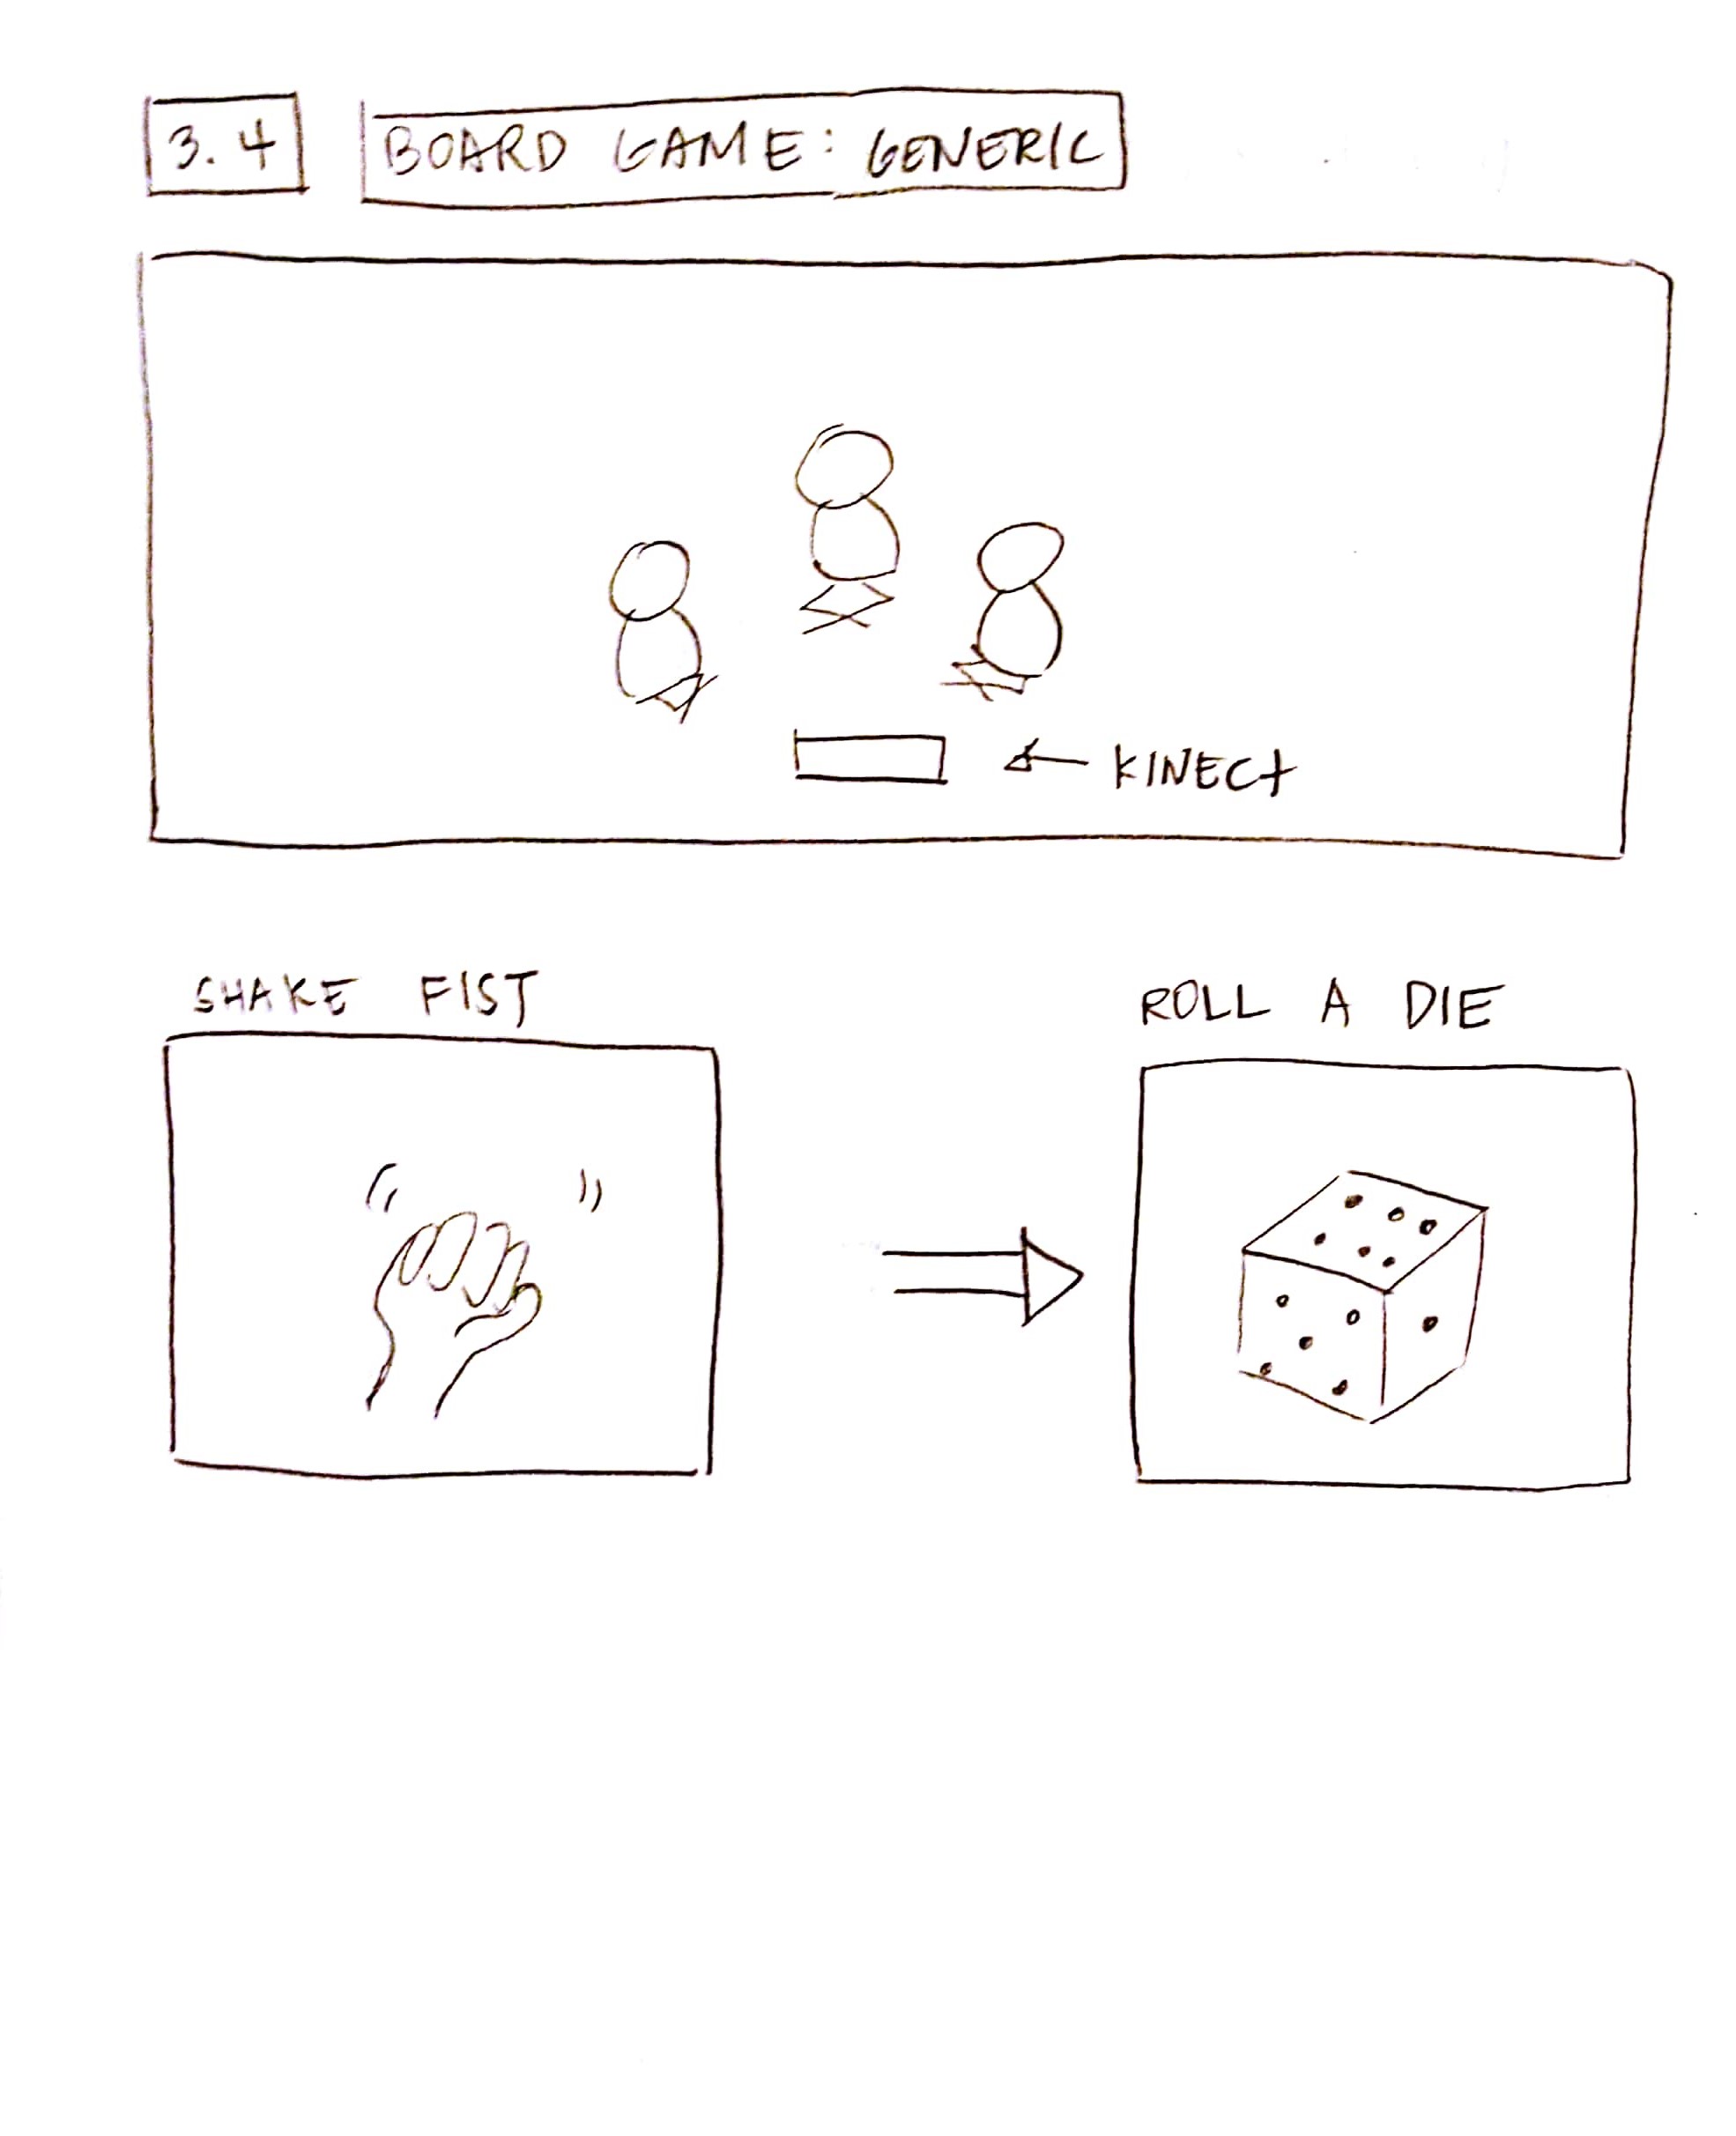 3.4 BOARD GAME: GENERIC
KINECT
SHAKE FIST
ROLL A DIE